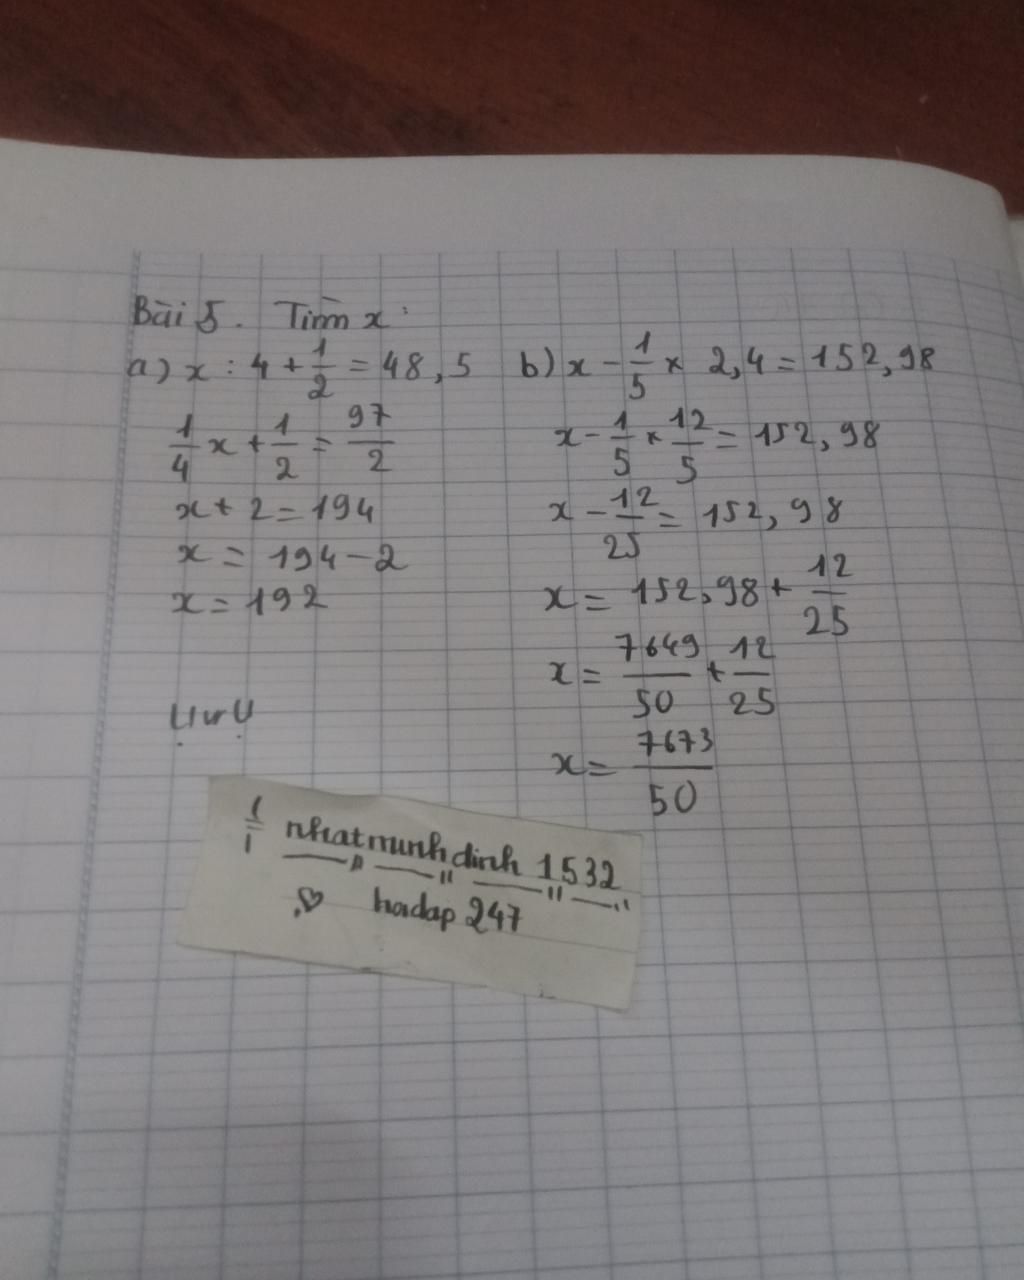 Bài 5. Tìm x:
a) x : 4 + 1/2 = 48,5
1/4 x + 1/2 = 97/2
x + 2 = 194
x = 194 - 2
x = 192
b) x - 1/5 × 2,4 = 152,98
x - 1/5 × 12/5 = 152,98
x - 12/25 = 152,98
x = 152,98 + 12/25
x = 7649/50 + 12/25
x = 7673/50
UwU
nhatminhdinh 1532
hoidap 247